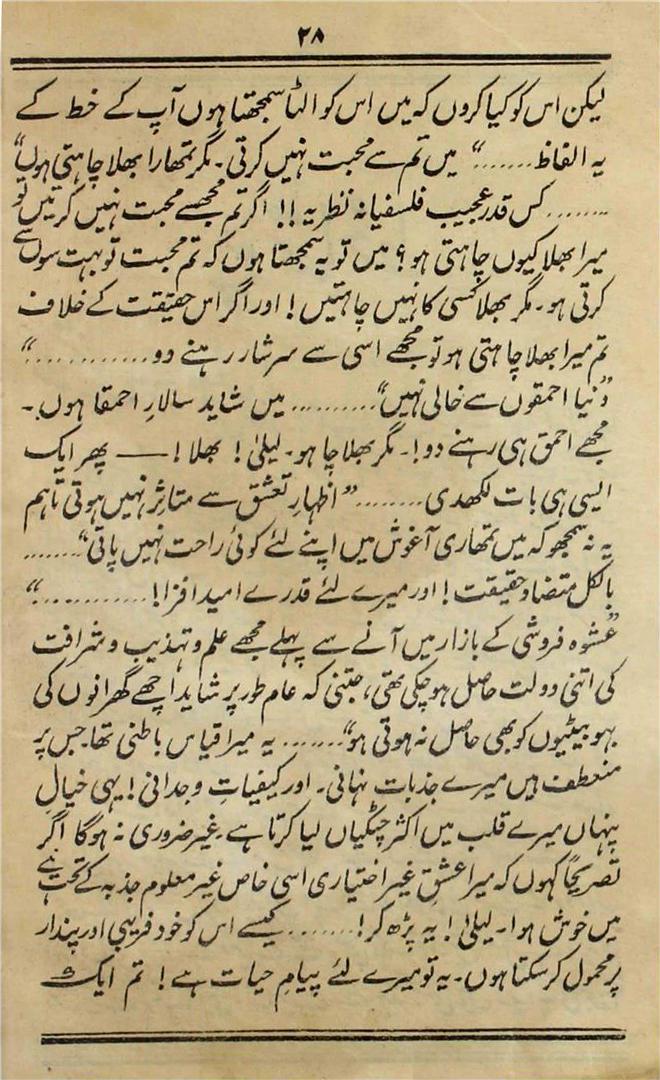 ۲۸
لیکن اس کو کیا کروں کہ میں اس کو الٹا سمجھتا ہوں آپ کے خط کے
یہ الفاظ......." میں تم سے محبت نہیں کرتی۔ مگر تمھارا بھلا چاہتی ہوں"
........ کس قدر عجیب فلسفیانہ نظریہ!! اگر تم مجھسے محبت نہیں کرتیں تو
میرا بھلا کیوں چاہتی ہو؟ میں تو یہ سمجھتا ہوں کہ تم محبت تو بہت سوں سے
کرتی ہو۔ مگر بھلا کسی کا نہیں چاہتیں! اور اگر اس حقیقت کے خلاف
تم میرا بھلا چاہتی ہو تو مجھے اسی سے سرشار رہنے دو............"
"دنیا احمقوں سے خالی نہیں".......... میں شاید سالارِ احمقا ہوں۔
مجھے احمق ہی رہنے دو!۔ مگر بھلا چاہو۔ لیلیٰ! بھلا! —— پھر ایک
ایسی ہی بات لکھدی........" اظہارِ تعشق سے متاثر نہیں ہوتی تاہم
یہ نہ سمجھو کہ میں تمھاری آغوش میں اپنے لئے کوئی راحت نہیں پاتی".......
بالکل متضاد حقیقت! اور میرے لئے قدرے امید افزا!............"
"عشوہ فروشی کے بازار میں آنے سے پہلے مجھے علم و تہذیب و شرافت
کی اتنی دولت حاصل ہو چکی تھی، جتنی کہ عام طور پر شاید اچھے گھرانوں کی
بہو بیٹیوں کو بھی حاصل نہ ہوتی ہو"....... یہ میرا قیاس باطنی تھا۔ جس پر
منعطف ہیں میرے جذبات نہانی۔ اور کیفیاتِ وجدانی! یہی خیالِ
پنہاں میرے قلب میں اکثر چٹکیاں لیا کرتا ہے۔ غیر ضروری نہ ہوگا اگر
تصریحاً کہوں کہ میرا عشق غیر اختیاری اسی خاص غیر معلوم جذبہ کے تحت ہے
میں خوش ہوا۔ لیلیٰ! یہ پڑھ کر!........ کیسے اس کو خود فریبی اور پندار
پر محمول کر سکتا ہوں۔ یہ تو میرے لئے پیامِ حیات ہے! تم ایک